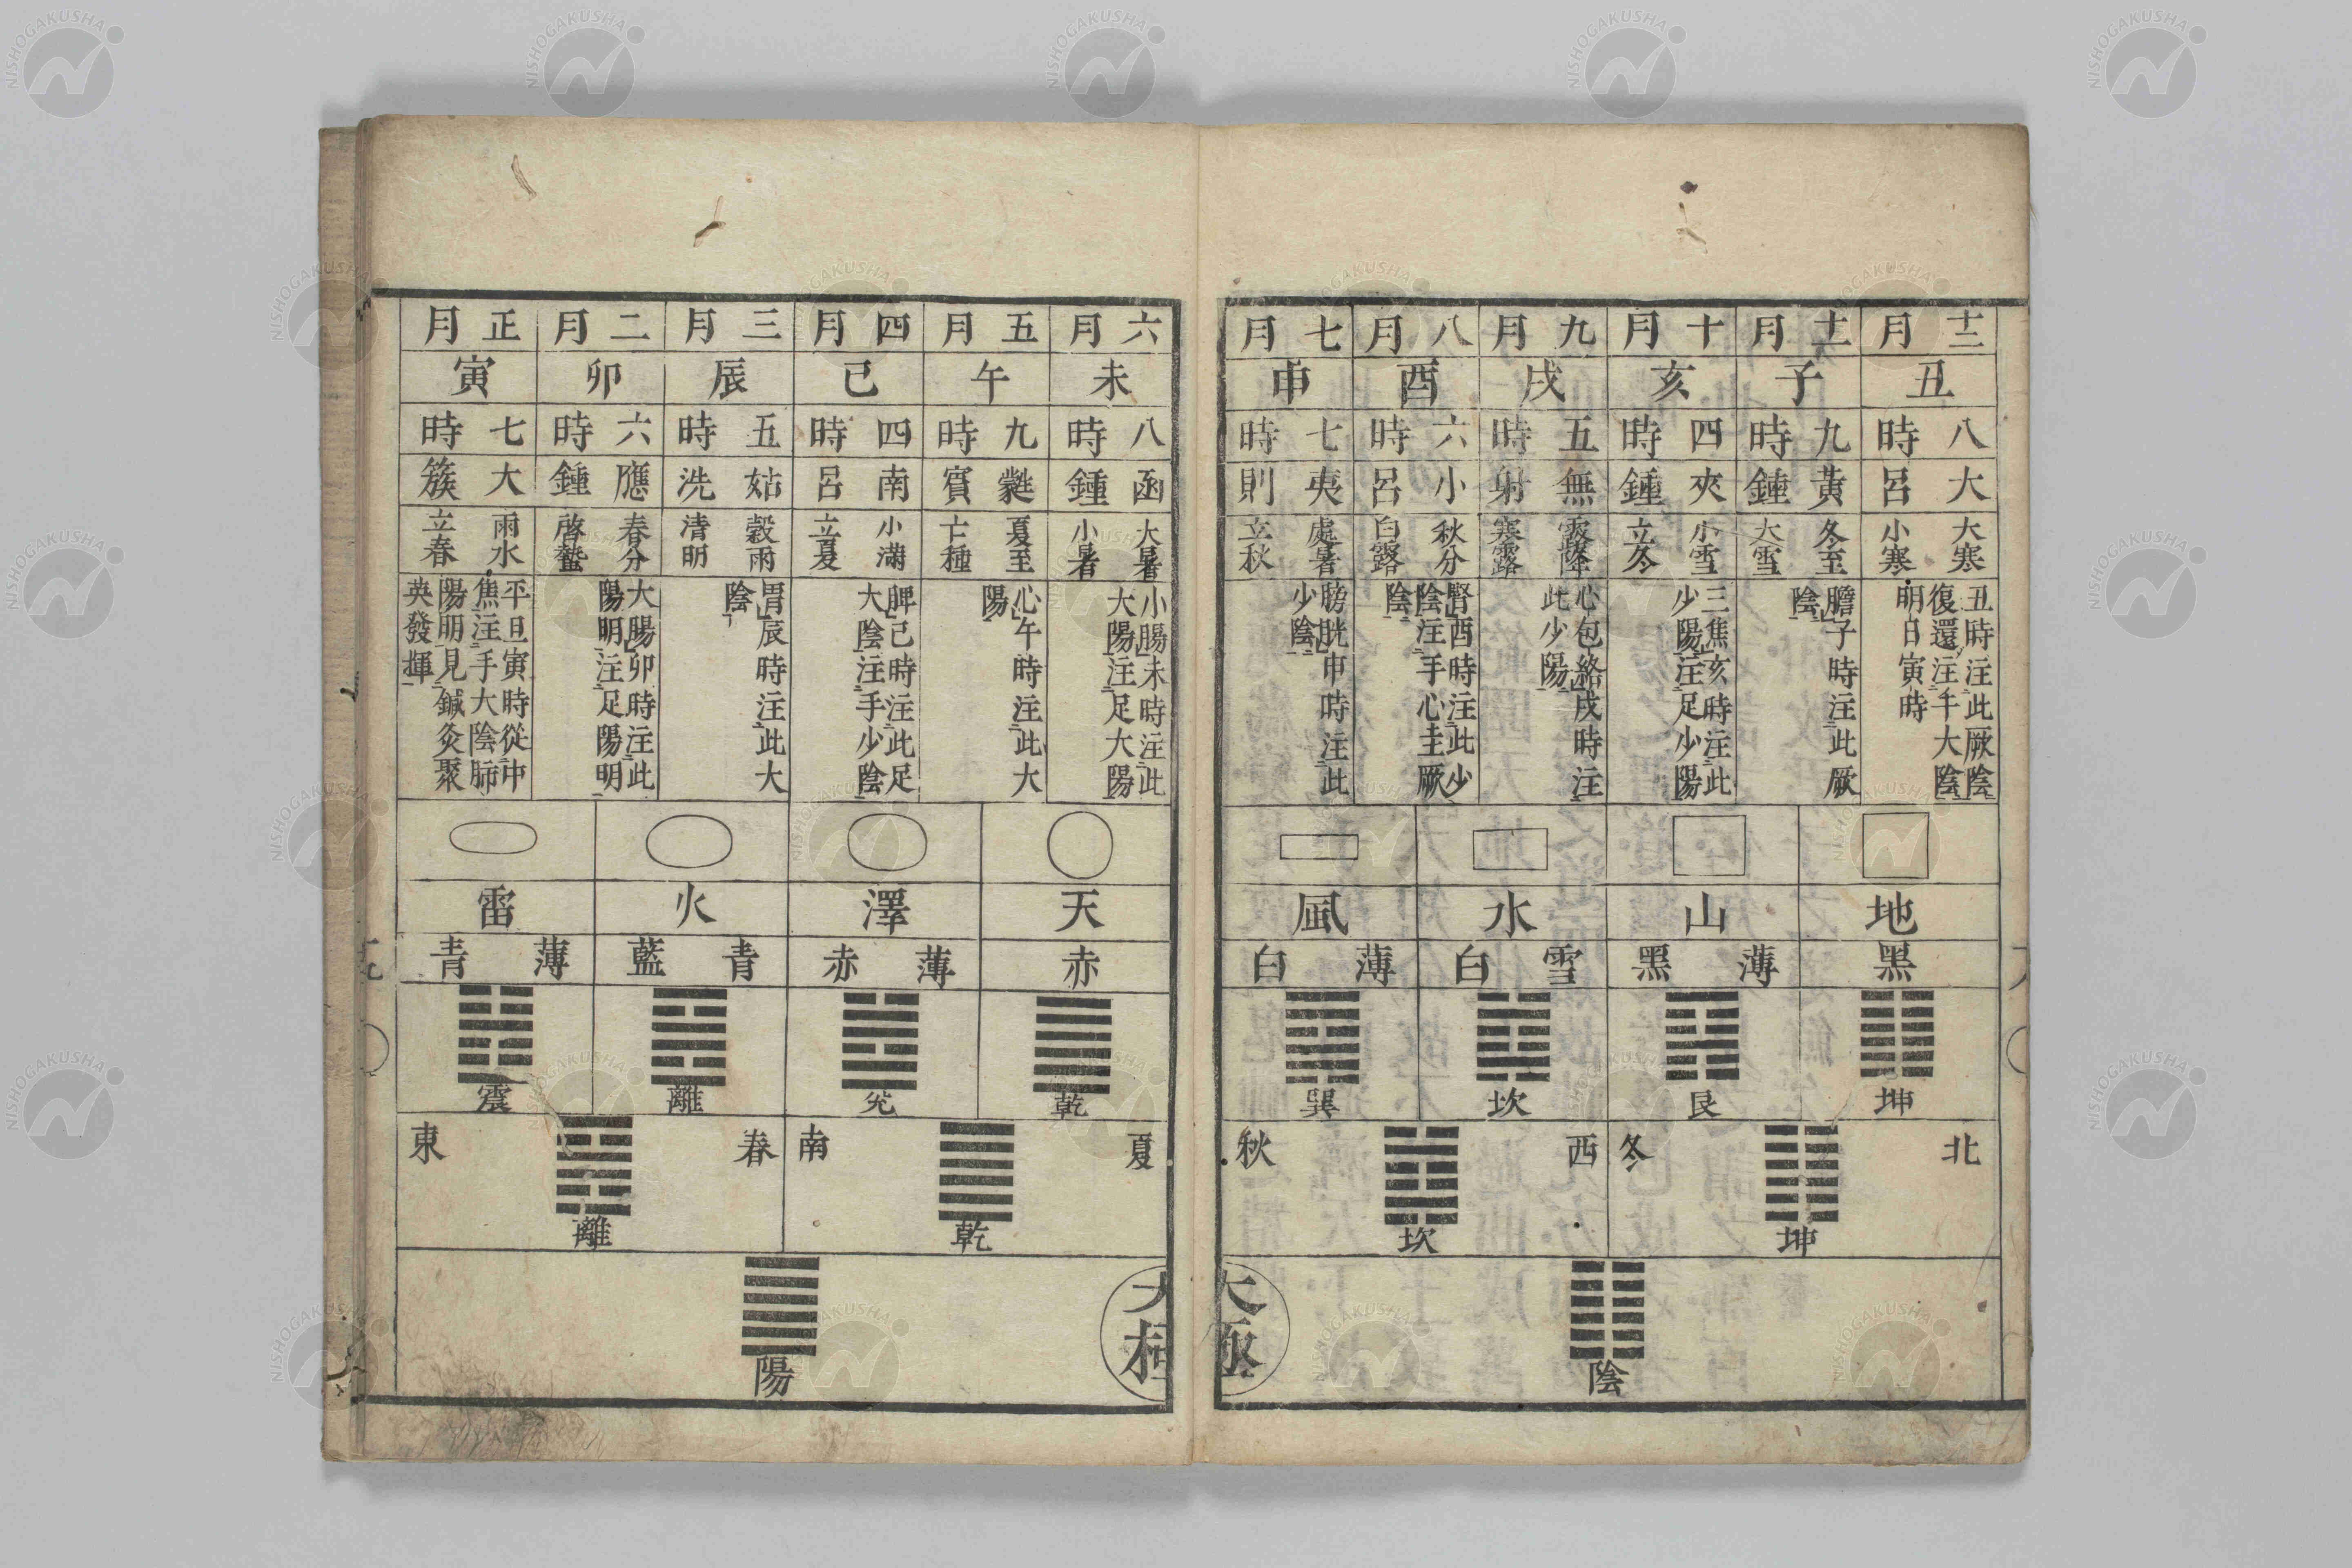 十二月 十一月 十月 九月 八月 七月
丑 子 亥 戌 酉 申
八時 九時 四時 五時 六時 七時
大呂 黃鍾 夾鍾 無射 小呂 夷則
大寒 小寒 冬至 大雪 小雪 立冬 霜降 寒露 秋分 白露 處暑 立秋
丑時注此厥陰
復還注千大陰
明日寅時
膽子時注此厥
陰
三焦亥時注此
少陽注足少陽
心包絡戌時注
此少陽
腎酉時注此少
陰注手心主厥
陰
膀胱申時注此
少陰
地 山 水 風
黑 薄黑 雪白 薄白
坤 艮 坎 巽
北 冬 西 秋
坤 坎
陰
大極
六月 五月 四月 三月 二月 正月
未 午 巳 辰 卯 寅
八時 九時 四時 五時 六時 七時
函鍾 蕤賓 南呂 姑洗 應鍾 大簇
大暑 小暑 夏至 亡種 小滿 立夏 穀雨 清明 春分 啓蟄 雨水 立春
小腸未時注此
大陽注足大陽
心午時注此大
陽
脾已時注此足
大陰注手少陰
胃辰時注此大
陰
大腸卯時注此
陽明注足陽明
平旦寅時從中
焦注手大陰肺
陽明見鍼灸聚
英發揮
天 澤 火 雷
赤 薄赤 青藍 薄青
乾 兌 離 震
夏 南 春 東
乾 離
陽
大極
NISHOGAKUSHA